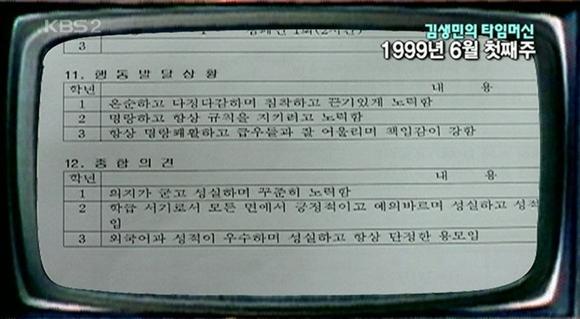 KBS2
김생민의 타임머신
1999년 6월 첫째주
3
11. 행동발달상황
학년 내 용
1 온순하고 다정다감하며 침착하고 끈기있게 노력함
2 명랑하고 항상 규칙을 지키려고 노력함
3 항상 명랑쾌활하고 급우들과 잘 어울리며 책임감이 강함
12. 종합의견
학년 내 용
1 의지가 굳고 성실하며 꾸준히 노력함
2 학급 서기로서 모든 면에서 긍정적이고 예의바르며 성실하고 성적
임
3 외국어과 성적이 우수하며 성실하고 항상 단정한 용모임